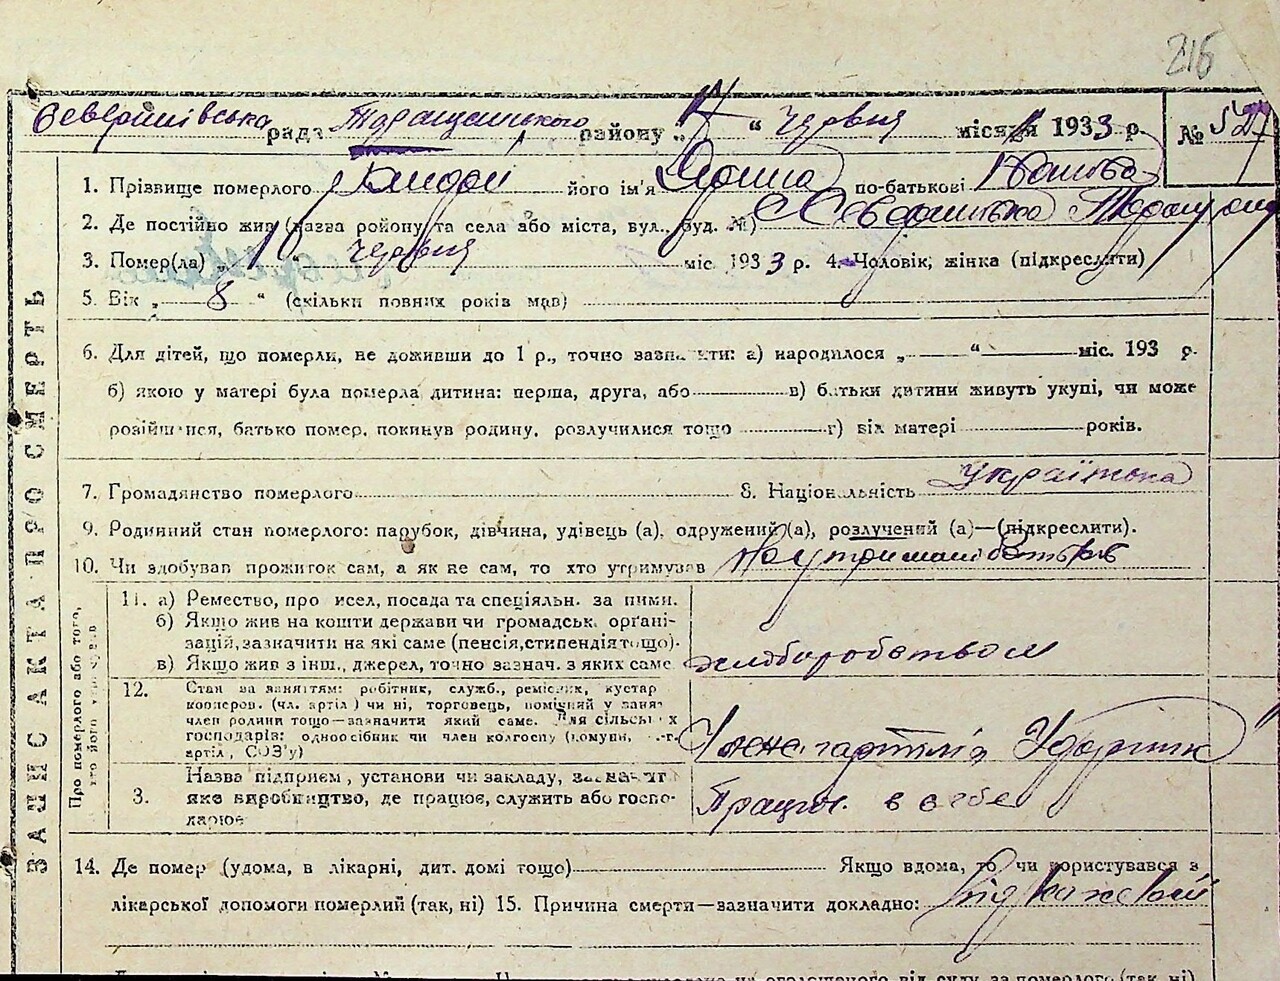 216
Северинівська рада Таращанського району „17“ червня місяця 1933 р. №
1. Прізвище померлого його ім'я по-батькові
2. Де постійно жив (назва району та села або міста, вул., буд. №) Северинівка
3. Помер(ла) „10“ червня міс. 1933 р. 4. Чоловік, жінка (підкреслити)
5. Вік „ 8 “ (скільки повних років мав)
6. Для дітей, що померли, не доживши до 1 р., точно зазначити: а) народилося „ “ міс. 193 р.
б) якою у матері була померла дитина: перша, друга, або в) батьки дитини живуть укупі, чи може
розійшлися, батько помер, покинув родину, розлучилися тощо г) вік матері років.
7. Громадянство померлого 8. Національність українка
9. Родинний стан померлого: парубок, дівчина, удівець (а), одружений (а), розлучений (а)—(підкреслити).
10. Чи здобував прожиток сам, а як не сам, то хто утримував На утриманні батьків
ЗАПИС АКТА ПРО СМЕРТЬ
Про померлого або того, хто його утримував
11. а) Ремество, про исел, посада та спеціяльн. за ними.
б) Якщо жив на кошти держави чи громадськ. організацій, зазначити на які саме (пенсія, стипендія тощо).
в) Якщо жив з інш., джерел, точно зазнач. з яких саме хлібороbством
12. Стан за заняттям: робітник, служб., ремісник, кустар
кооперов. (чл. артіл.) чи ні, торговець, поміщик у занят
член родини тощо—зазначити який саме. Для сільських
господарів: одноосібник чи член колгоспу (комуни, с.-г.
артіл., СОЗ'у)
Член артілі Ударник
3. Назва підприєм, установи чи закладу, зазначит
яке виробництво, де працює, служить або госпо-
дарює
Працює в себе
14. Де помер (удома, в лікарні, дит. домі тощо) Якщо вдома, то чи користувався з
лікарської допомоги померлий (так, ні) 15. Причина смерти—зазначити докладно: